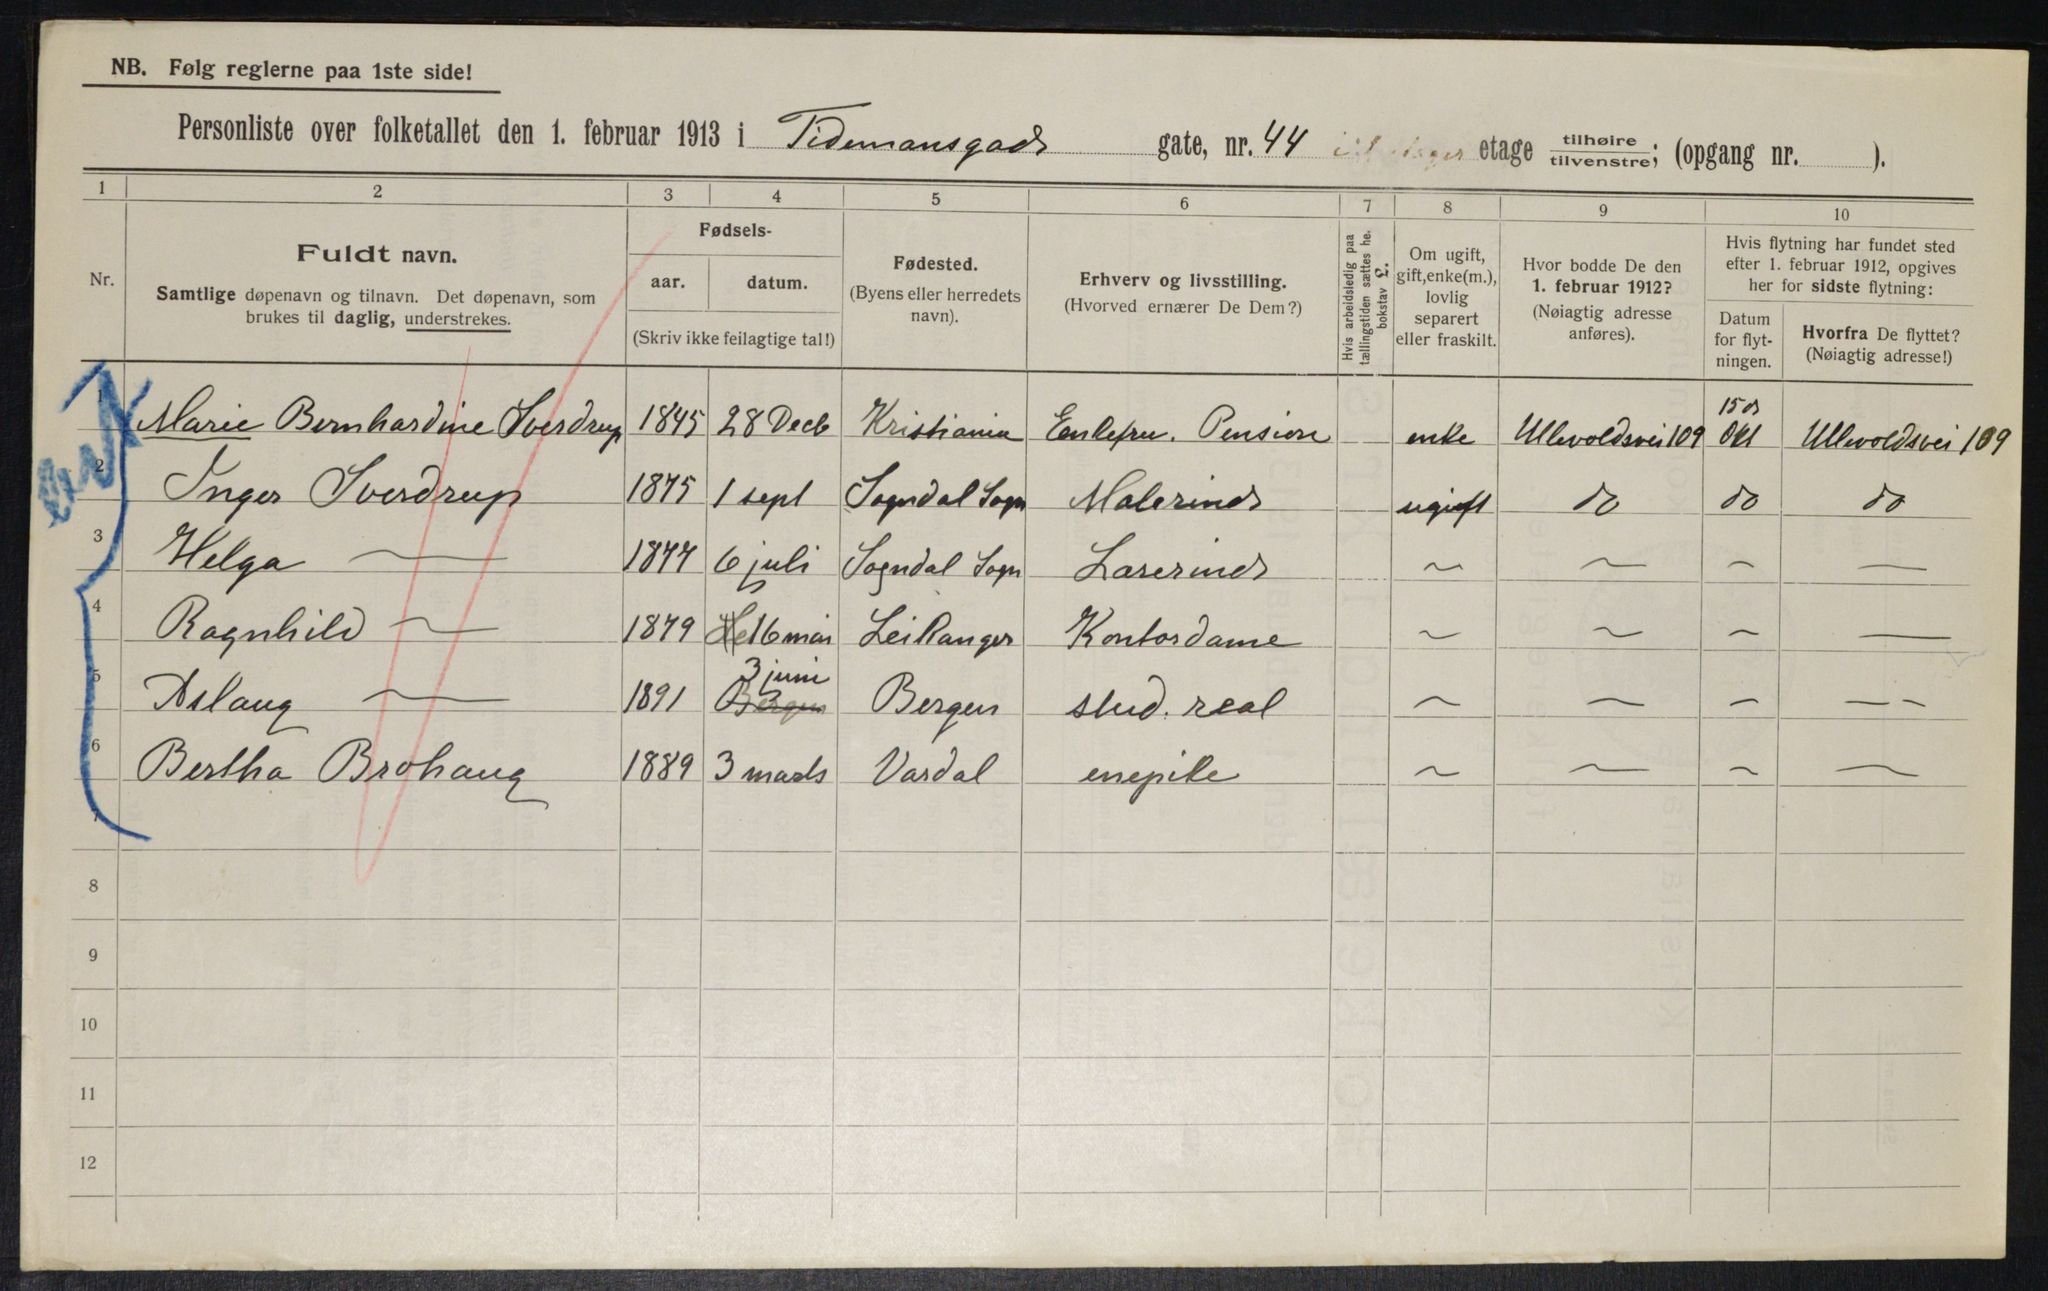 NB. Følg reglerne paa 1ste side!
Personliste over folketallet den 1. februar 1913 i Tidemansgade gate, nr. 44 etage tilhøire/tilvenstre; (opgang nr. ).
1 2 3 4 5 6 7 8 9 10
Nr.
Fuldt navn.
Samtlige døpenavn og tilnavn. Det døpenavn, som
brukes til daglig, understrekes.
Fødsels-
aar. datum.
(Skriv ikke feilagtige tal!)
Fødested.
(Byens eller herredets
navn).
Erhverv og livsstilling.
(Hvorved ernærer De Dem?)
Hvis arbeidsledig paa
tællingstiden sættes he.
bokstav £.
Om ugift,
gift, enke(m.),
lovlig
separert
eller fraskilt.
Hvor bodde De den
1. februar 1912?
(Nøiagtig adresse
anføres).
Hvis flytning har fundet sted
efter 1. februar 1912, opgives
her for sidste flytning:
Datum
for flyt-
ningen.
Hvorfra De flyttet?
(Nøiagtig adresse!)
1 Marie Bernhardine Sverdrup 1845 28 Decb Kristiania Enkefru. Pension enke Ullevoldsvei 109 15 de Okt Ullevoldsvei 109
2 Inger Sverdrup 1875 1 sept Sogndal Sogn Malerinde ugift do do do
3 Helga — 1877 6 juli Sogndal Sogn Lærerinde ~ ~ ~ —
4 Ragnhild — 1879 16 mai Leikanger Kontordame ~ ~ ~ —
5 Aslaug — 1891 3 juni Bergen Bergen stud. real ~ ~ ~ — –
6 Bertha Brohaug 1889 3 marts Vardal enepike ~ ~ ~ —
7
8
9
10
11
12